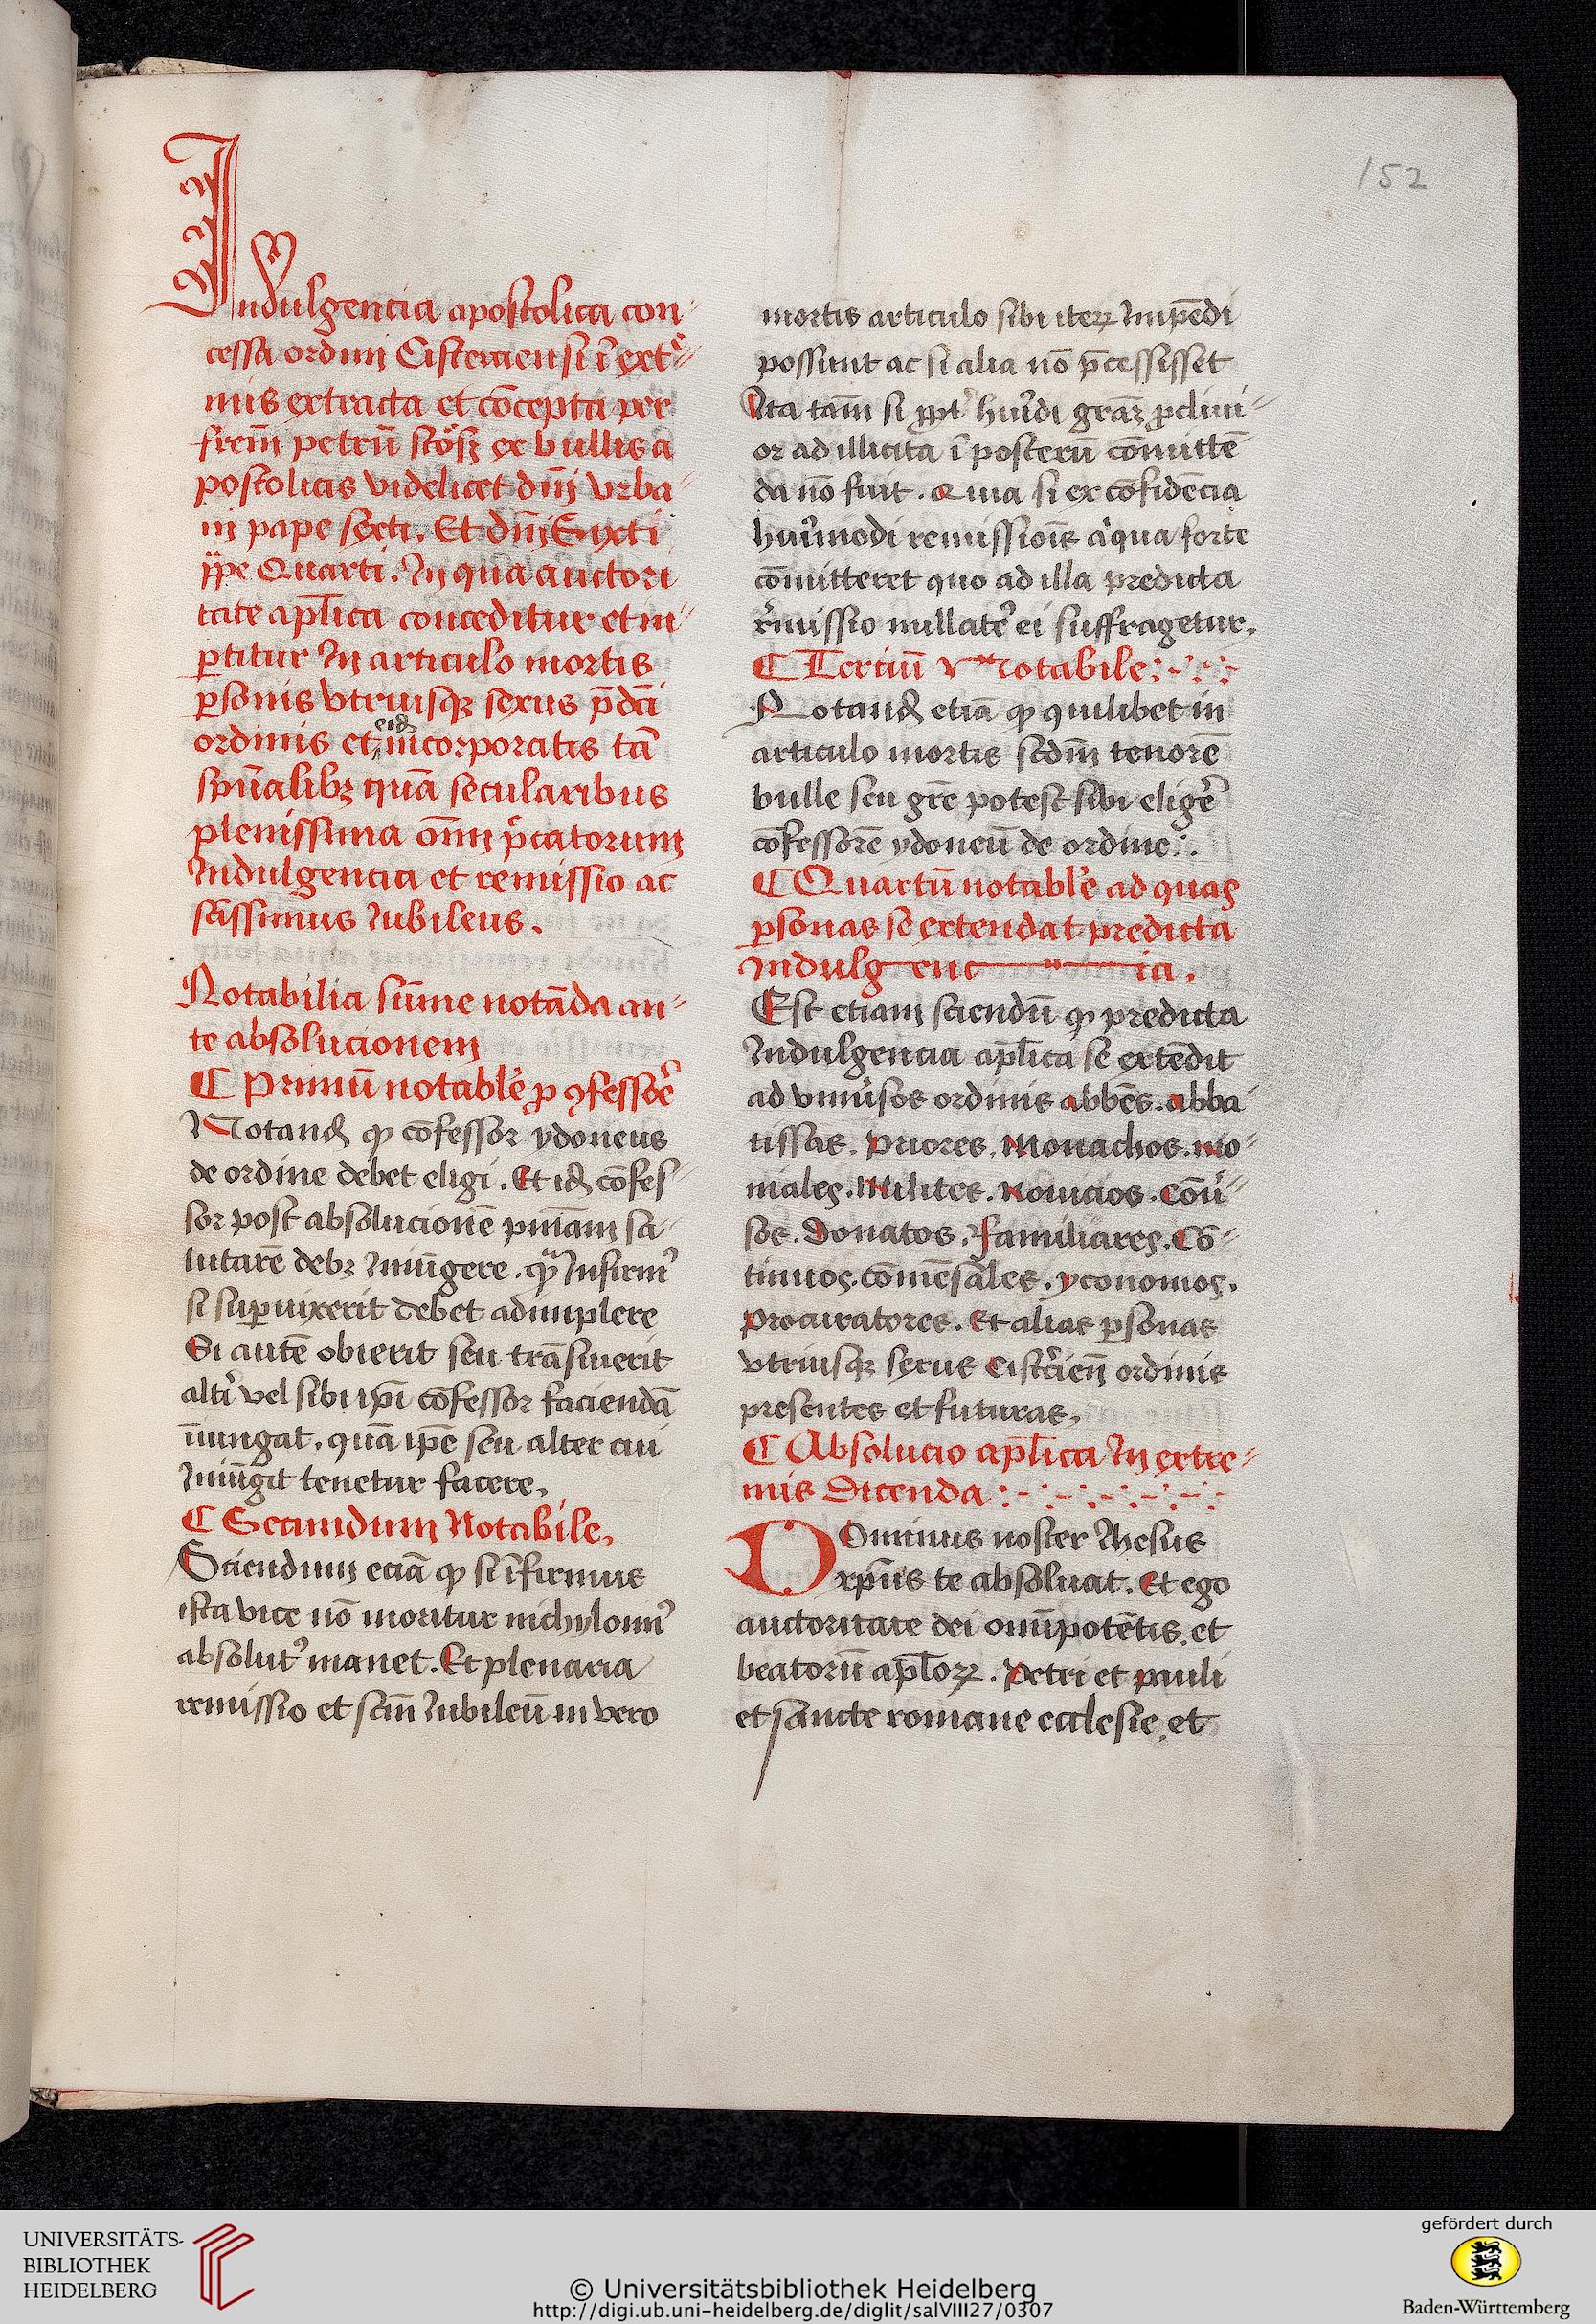 152
Indulgencia apostolica con-
cessa ordinj Cisterciensi ī ext'e-
mis extracta et cōcepta per
frēm petrū stoſʒ ex bullis a
postolicis videlicet dnī vrba-
nj pape sexti. Et dnī Sixti
ppe Quarti. In qua auctori
tate aplica conceditur et in-
ꝑtitur In articulo mortis
ꝑsonis vtriusqʒ sexus p̄dci
ordinis et eisd incorporatis tā
spūalibʒ quā secularibus
plenissima om̄ pccatorum
Indulgencia et remissio ac
scissimus Iubileus.
Notabilia sūme notāda an-
te absolucionem
¶ Primū notable ꝓ ꝯfessore
Notand ꝙ cōfessor ydoneus
de ordine debet eligi. Et id cōfes-
sor post absolucionē pniam sa-
lutarē debʒ Iniūgere. quā Infirm9
si supuixerit debet adimplere
Si autē obierit seu trāsiuerit
alti vel sibi ipī cōfessor faciendā
iniungat. quā ipe seu alter cui
Iniūgit tenetur facere.
¶ Secundum Notabile.
Sciendum eciā ꝙ si īfirmus
ista vice nō moritur nichylomin9
absolut9 manet. Et plenaria
remissio et scm̄ Iubileū in vero
mortis articulo sibi iteꝝ Impēdi
possunt ac si alia nō p̄cessisset
Ita tam̄ si ppt' hui9di gr̄aʒ ꝓcliui-
or ad illicita ī posterū cōmittē
da nō fuit. Quia si ex cōfidēcia
hui9modi remissiōis aliqua forte
cōmitteret quo ad illa predicta
r'missio nullaten9 ei suffragetur.
¶ Terciū Notabile
Notand etiā ꝙ quilibet in
articulo mortis scdm̄ tenorē
bulle seu gr̄e potest sibi elig'e
cōfessorē ydoneū de ordine.
¶ Quartū notable ad quas
ꝑsonas se extendat predicta
Indulgencia.
Est etiam sciendū ꝙ predicta
Indulgencia aplica se extēdit
ad vniu'sos ordinis abbēs. abba
tissas. Priores. Monachos. Mo-
niales. Milites. Nouicios. Cōu'-
sos. Donatos. Familiares. Cō-
tinuos. cōmēsales. yconomos.
Procuratores. Et alias ꝑsonas
vtriusqʒ sexus Cistcien̄ ordinis
presentes et futuras.
¶ Absolucio aplica In extre-
mis Dicenda
Dominus noster Ihesus
xp̄us te absoluat. Et ego
auctoritate dei om̄ipotētis. et
beatorū aploꝝ. Petri et pauli
et sancte romane ecclesie. et
UNIVERSITÄTS-
BIBLIOTHEK
HEIDELBERG
© Universitätsbibliothek Heidelberg
http://digi.ub.uni-heidelberg.de/diglit/salVIII27/0307
gefördert durch
Baden-Württemberg